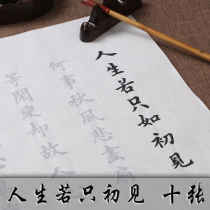 人生若只如初見
何事秋風悲畫扇
等閒變却故人
人生若只如初見 十张